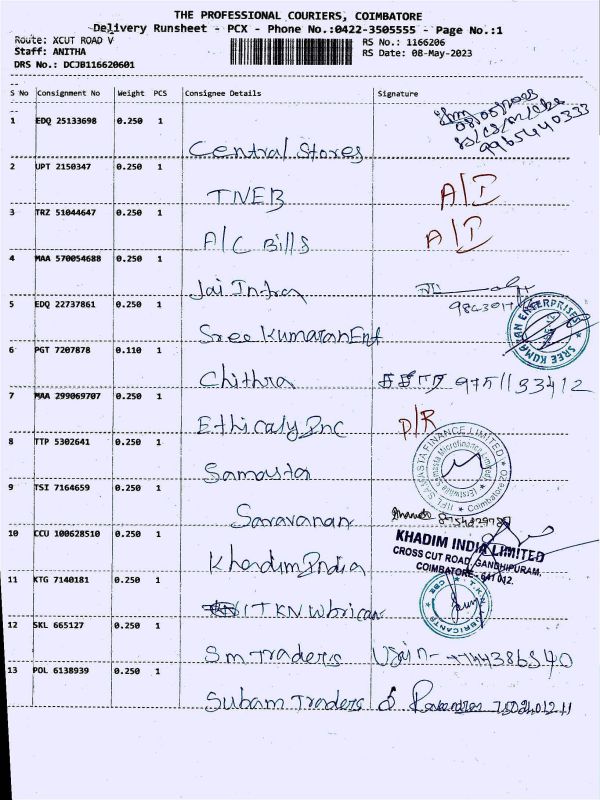 THE PROFESSIONAL COURIERS, COIMBATORE
Delivery Runsheet - PCX - Phone No.:0422-3505555 - Page No.:1
Route: XCUT ROAD V
RS No.: 1166206
Staff: ANITHA
RS Date: 08-May-2023
DRS No.: DCJB116620601
S No Consignment No Weight PCS Consignee Details Signature
1 EDQ 25133698 0.250 1 Central Stores 08/05/2023
9965440333
2 UPT 2150347 0.250 1 TNEB A/I
3 TRZ 51044647 0.250 1 A/C Bills A/I
4 MAA 570054688 0.250 1 Jai Infra
5 EDQ 22737861 0.250 1 Sree Kumaran Ent
SREE KUMARAN ENTERPRISES
6 PGT 7207878 0.110 1 Chithra
7 MAA 299069707 0.250 1 Ethicaly Inc D/R
8 TTP 5302641 0.250 1 Samasta
IIFL SAMASTA FINANCE LIMITED
(Erstwhile Samasta Microfinance Limited)
Coimbatore
9 TSI 7164659 0.250 1 Saravanan
10 CCU 100628510 0.250 1 Khadim India
KHADIM INDIA LIMITED
CROSS CUT ROAD, GANDHIPURAM,
COIMBATORE - 641 012.
11 KTG 7140181 0.250 1 TKN
12 SKL 665127 0.250 1 Sm Traders
13 POL 6138939 0.250 1 Subam Traders